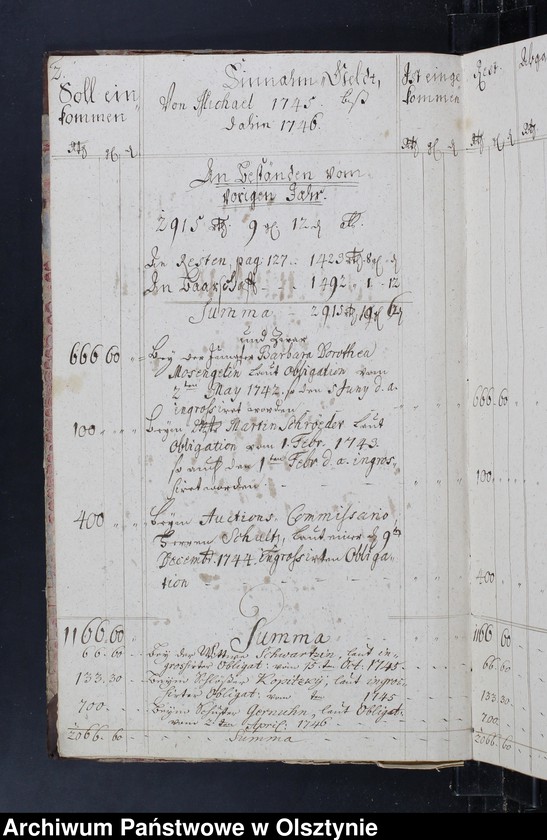 2.
Soll ein
kommen
Einnahm Geldt,
Von Michael 1745. biß
dahin 1746.
Ist einge
kommen
Rest.
Abga
An Beständen vom
vorigen Jahr.
2915 9 12
An Resten, pag. 127. 1423 8
An Baarschafft 1492 1 12
Summa 2915
und Zwar
666 60 Bey der Jungfer Barbara Dorothea
Mosengelin laut Obligation vom
2ten May 1742. so den 5 Juny d. a.
ingrossiret worden 666 60
100 Beym Martin Schröder laut
Obligation vom 1. Febr. 1743.
so auch den 1ten Febr d. a. ingros-
siret worden 100
400 Beym Auctions Commissario,
Herren Schultz, laut einer 9ten
Decembr. 1744. ingrossirten Obliga-
tion 400
1166 60 Summa 1166 60
66 60 Bey der Wittwe Schwartzin, laut in-
grossirter Obligat: vom 15. Oct. 1745 66 60
133 30 Beym Kopitzky, laut ingros-
sirter Obligat. vom 1745 133 30
700 Beym Gernuhn, laut Obligat.
vom April: 1746 700
2066 60 Summa 2066 60
Archiwum Państwowe w Olsztynie